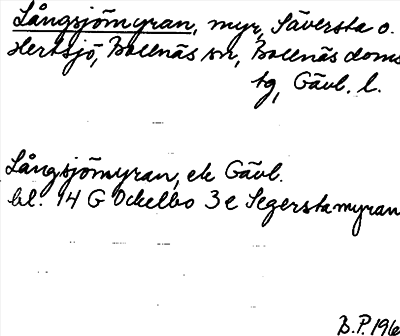 Långsjömyran, myr, Säversta o.
Hertsjö, Bollnäs sn, Bollnäs doms
tg, Gävl. l.
Långsjömyran, ek Gävl.
bl. 14 G Ockelbo 3 e Segerstamyran
B.P. 196